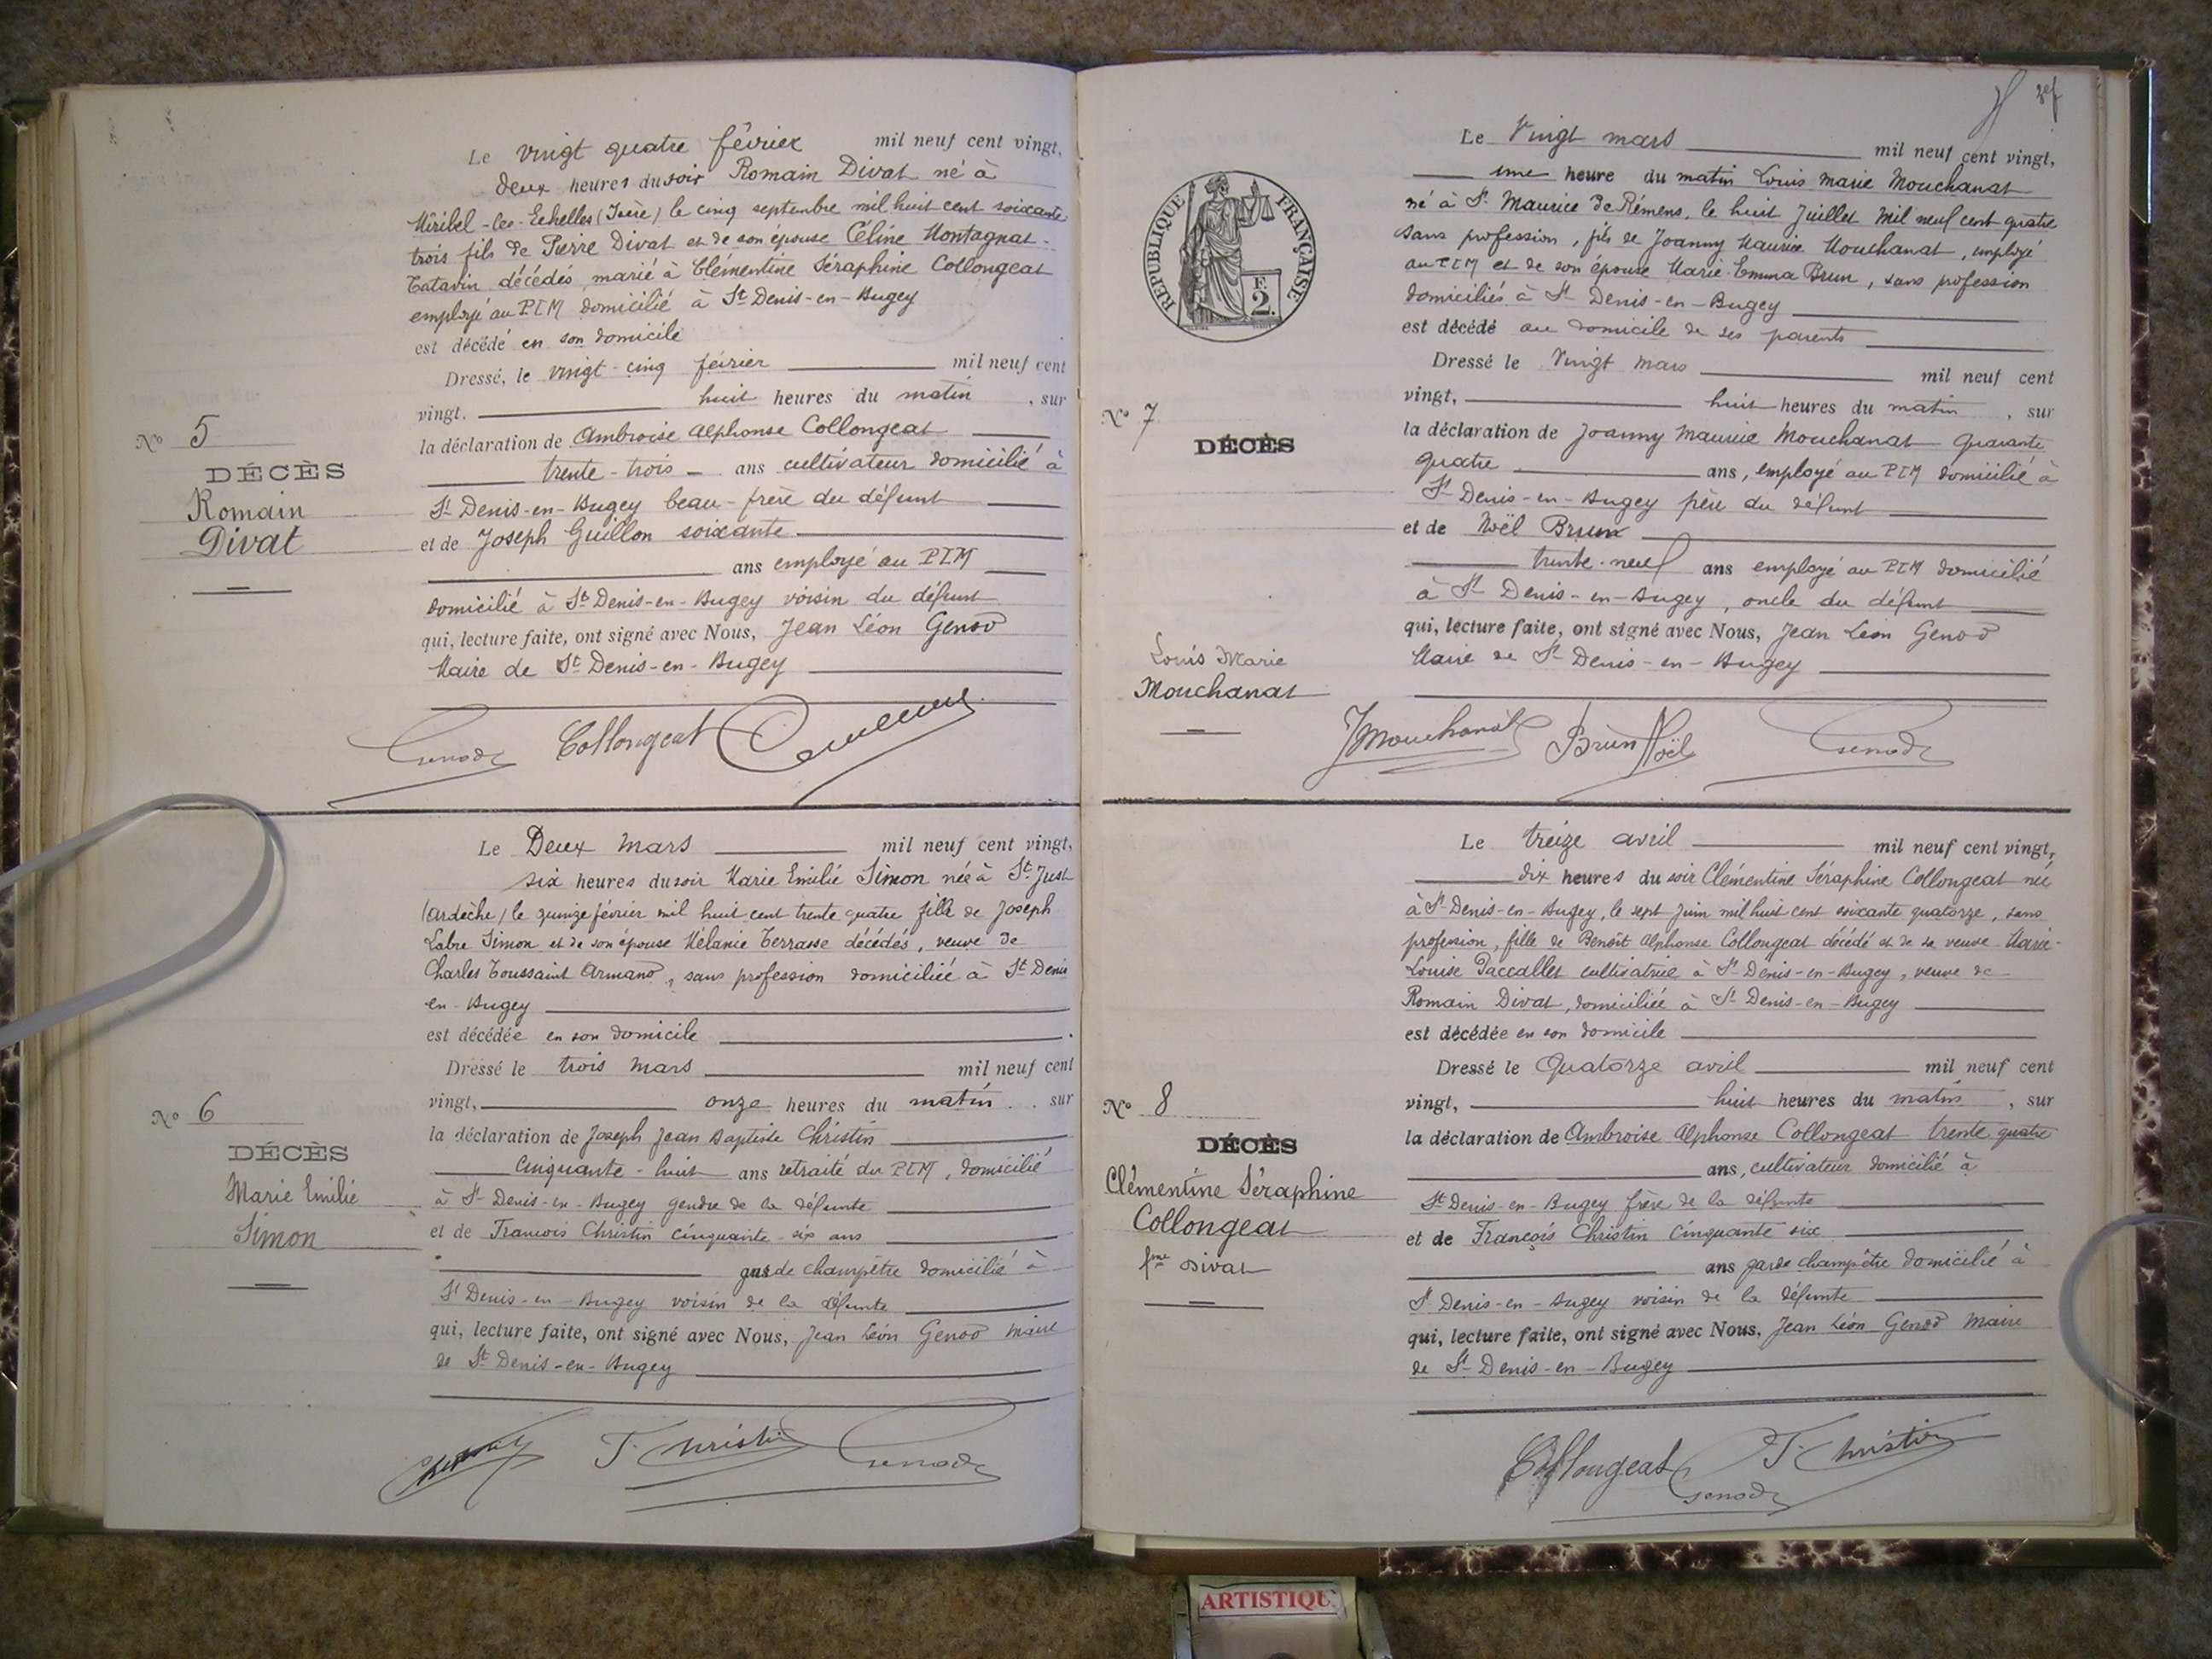 Le vingt quatre février mil neuf cent vingt,
deux heures du soir Romain Divat né à
Miribel-les-Echelles (Isère) le cinq septembre mil huit cent soixante
trois fils de Pierre Divat et de son épouse Céline Montagnat-
Tatavin décédés, marié à Clémentine Séraphine Collongeat
employé au PLM domicilié à St Denis-en-Bugey
est décédé en son domicile
Dressé, le vingt-cinq février mil neuf cent
vingt. huit heures du matin, sur
la déclaration de Ambroise Alphonse Collongeat
trente-trois ans cultivateur domicilié à
St Denis-en-Bugey beau-frère du défunt
et de Joseph Guillon soixante
ans employé au PLM
domicilié à St Denis-en-Bugey voisin du défunt
qui, lecture faite, ont signé avec Nous, Jean Léon Genod
Maire de St Denis-en-Bugey
No 5
DÉCÈS
Romain
Divat
Genod Collongeat
Le Deux mars mil neuf cent vingt,
six heures du soir Marie Emilie Simon née à St Just
(Ardèche) le quinze février mil huit cent trente quatre fille de Joseph
Labre Simon et de son épouse Mélanie Terrasse décédés, veuve de
Charles Toussaint Armand, sans profession domiciliée à St Denis
en-Bugey
est décédée en son domicile
Dressé le trois mars mil neuf cent
vingt, onze heures du matin, sur
la déclaration de Joseph Jean Baptiste Christin
cinquante-huit ans retraité du PLM, domicilié
à St Denis-en-Bugey gendre de la défunte
et de François Christin cinquante-six ans
garde champêtre domicilié à
St Denis-en-Bugey voisin de la défunte
qui, lecture faite, ont signé avec Nous, Jean Léon Genod Maire
de St Denis-en-Bugey
No 6
DÉCÈS
Marie Emilie
Simon
F. Christin Genod
RÉPUBLIQUE FRANÇAISE
F
2.
Le Vingt mars mil neuf cent vingt,
une heure du matin Louis Marie Mouchanat
né à St Maurice de Rémens, le huit Juillet mil neuf cent quatre
sans profession, fils de Joanny Maurice Mouchanat, employé
au PLM et de son épouse Marie-Emma Brun, sans profession
domiciliés à St Denis-en-Bugey
est décédé au domicile de ses parents
Dressé le Vingt mars mil neuf cent
vingt, huit heures du matin, sur
la déclaration de Joanny Maurice Mouchanat Quarante
quatre ans, employé au PLM domicilié à
St Denis-en-Bugey père du défunt
et de Noël Brun
trente-neuf ans employé au PLM domicilié
à St Denis-en-Bugey, oncle du défunt
qui, lecture faite, ont signé avec Nous, Jean Léon Genod
Maire de St Denis-en-Bugey
No 7
DÉCÈS
Louis Marie
Mouchanat
JMouchanat Brun Noël Genod
Le treize avril mil neuf cent vingt,
dix heures du soir Clémentine Séraphine Collongeat née
à St Denis-en-Bugey, le sept Juin mil huit cent soixante quatorze, sans
profession, fille de Benoît Alphonse Collongeat décédé et de sa veuve Marie-
Louise Paccallet cultivatrice à St Denis-en-Bugey, veuve de
Romain Divat, domiciliée à St Denis-en-Bugey
est décédée en son domicile
Dressé le Quatorze avril mil neuf cent
vingt, huit heures du matin, sur
la déclaration de Ambroise Alphonse Collongeat trente quatre
ans, cultivateur domicilié à
St Denis-en-Bugey frère de la défunte
et de François Christin Cinquante six
ans garde champêtre domicilié à
St Denis-en-Bugey voisin de la défunte
qui, lecture faite, ont signé avec Nous, Jean Léon Genod Maire
de St Denis-en-Bugey
No 8
DÉCÈS
Clémentine Séraphine
Collongeat
fme Divat
Collongeat F. Christin
Genod
ARTISTIQU